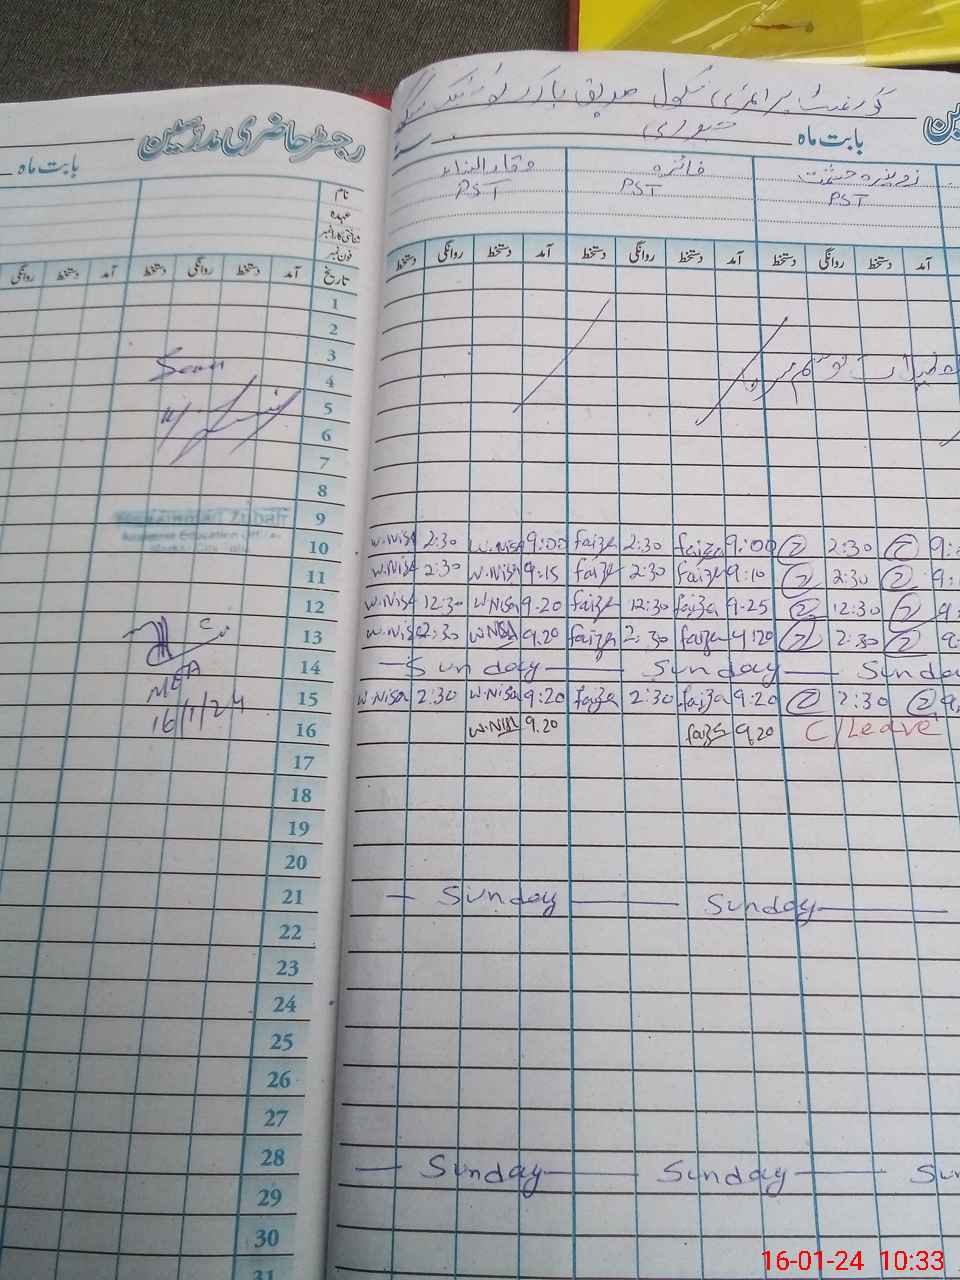 رجسٹر حاضری مدرسین
بابت ماہ
گورنمنٹ پرائمری سکول صدیق
بابت ماہ جنوری
نام
عہدہ
شناختی کارڈ نمبر
فون نمبر
وقار النساء فائزہ
PST PST PST
روانگی دستخط آمد دستخط روانگی دستخط آمد تاریخ دستخط روانگی دستخط آمد دستخط روانگی دستخط آمد دستخط روانگی دستخط آمد
1
2
3
4
Seen
5
6
7
8
9
10 W.Nisa 2:30 W.Nisa 9:00 faiza 2:30 faiza 9:00 2:30
11 W.Nisa 2:30 W.Nisa 9:15 faiza 2:30 faiza 9:10 2:30
12 W.Nisa 12:30 W.Nisa 9.20 faiza 12:30 faiza 9.25 12:30
13 W.Nisa 2:30 W.Nisa 9.20 faiza 2:30 faiza 9:20 2:30
14 Sunday Sunday Sunday
15 W.Nisa 2:30 W.Nisa 9:20 faiza 2:30 faiza 9:20 2:30
MEA
16/1/24
16 W.Nisa 9.20 faiza 9.20 C/Leave
17
18
19
20
21 Sunday Sunday
22
23
24
25
26
27
28 Sunday Sunday Su
29
30
31
16-01-24 10:33